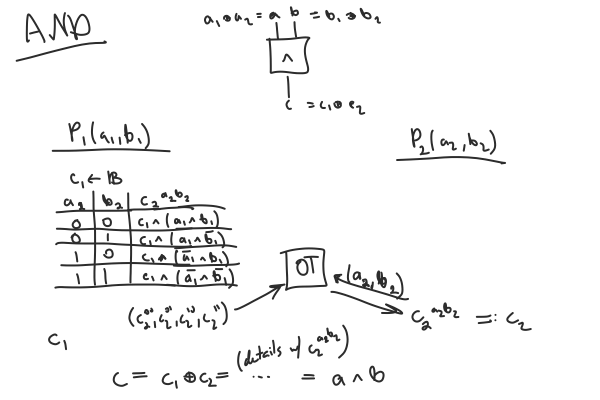 AND
a₁⊕a₂ = a b = b₁⊕b₂
∧
c = c₁⊕c₂
P₁(a₁,b₁)
P₂(a₂,b₂)
c₁ ← 𝔹
a₂ b₂ c₂^a₂b₂
0 0 c₁∧(a₁∧b₁)
0 1 c₁∧(a₁∧b̄₁)
1 0 c₁∧(ā₁∧b₁)
1 1 c₁∧(ā₁∧b̄₁)
OT
(a₂,b₂)
(c₂⁰⁰,c₂⁰¹,c₂¹⁰,c₂¹¹)
c₂^a₂b₂ =: c₂
c₁
(details w/ c₂^a₂b₂)
c = c₁⊕c₂ = ... = a∧b